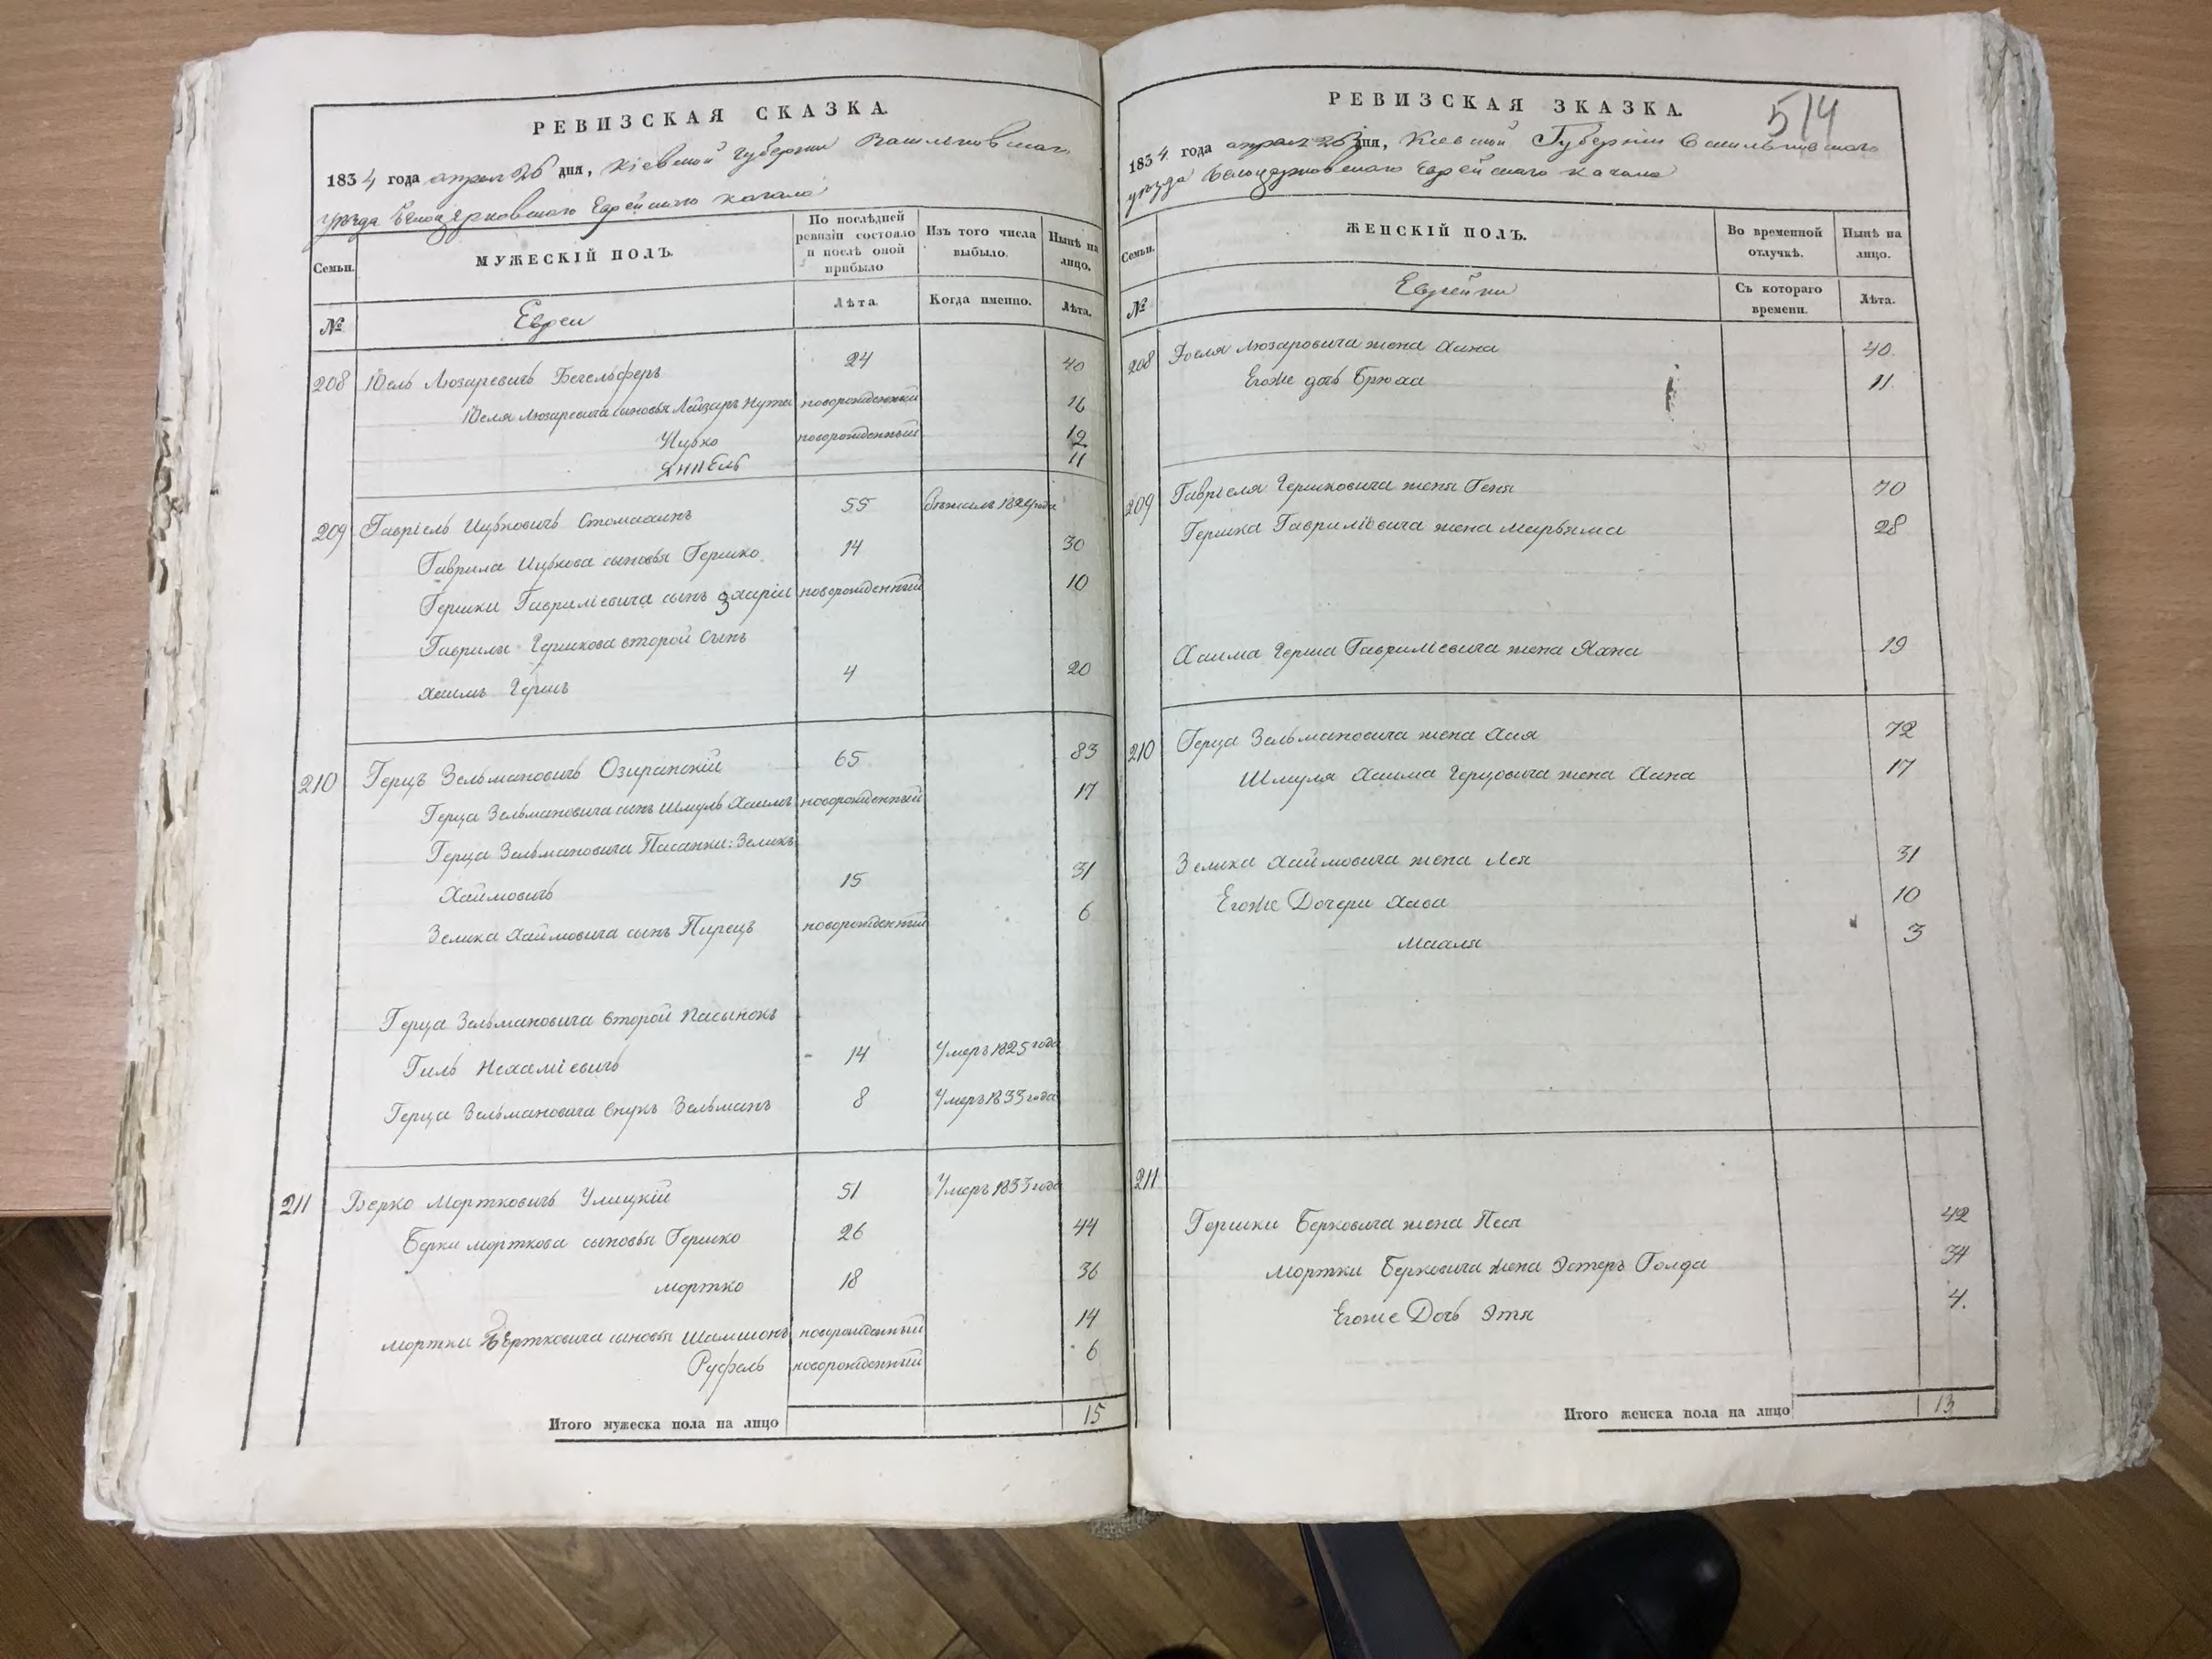 РЕВИЗСКАЯ СКАЗКА.
1834 года апреля 26 дня, Кіевской Губерніи Васильковскаго
уѣзда Бѣлоцерковскаго Еврейскаго кагала
Семьи.
МУЖЕСКІЙ ПОЛЪ.
По послѣдней ревизіи состояло и послѣ оной прибыло
Изъ того числа выбыло.
Нынѣ на лицо.
№
Евреи
Лѣта.
Когда именно.
Лѣта.
208 Юсль Люзаревичь 24 40
Юселя Люзаревича сыновья Лейзаръ Нута новорожденный 16
Ицько новорожденный 12
11
209 Гавріель Ицьковичь 55 1829 года
Гаврила Ицькова сыновья Гершко 14 30
Гершки Гавриліевича сынъ Захарія новорожденный 10
Гаврилы Гершкова второй Сынъ
Хаимъ Гершъ 4 20
210 Герцъ Зельмановичь Озирянскій 65 83
Герца Зельмановича сынъ Шмуль Хаимъ новорожденный 17
Герца Зельмановича Пасынки: Зеликъ
Хаймовичь 15 31
Зелика Хаймовича сынъ Пирецъ новорожденный 6
Герца Зельмановича второй пасынокъ
Гиль Нехаміевичь 14 Умеръ 1825 года
Герца Зельмановича внукъ Зельманъ 8 Умеръ 1833 года
211 Берко Мортковичь Улицкій 51 Умеръ 1833 года
Берки Морткова сыновья Гершко 26 44
Мортко 18 36
Мортки сыновья Шамшонъ новорожденный 14
Руфель новорожденный 6
Итого мужеска пола на лицо 15
РЕВИЗСКАЯ ЗКАЗКА.
514
1834 года апреля 26 дня, Кіевской Губерніи Васильковскаго
уѣзда Белоцерковскаго Еврейскаго кагала
Семьи.
ЖЕНСКІЙ ПОЛЪ.
Во временной отлучкѣ.
Нынѣ на лицо.
№
Еврейки
Съ котораго времени.
Лѣта.
208 Люзаровича жена Хана 40.
Егоже дочь Брюха 11.
209 Гавріеля Гершковича жена Геня 70
Гершка Гавриліевича жена Марьяма 28
Хаима Герша Гавриліевича жена Хана 19
210 Герца Зельмановича жена Хая 72
Шмуля Хаима Герцовича жена Хана 17
Зелика Хаймовича жена Лея 31
Егоже Дочери Хава 10
Махля 3
211
Гершки Берковича жена Песя 42
Мортки Берковича жена Эстеръ Голда 34
Егоже Дочь Этя 4.
Итого женска пола на лицо 13